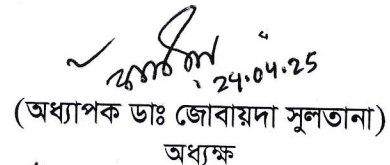 24.04.25
(অধ্যাপক ডাঃ জোবায়দা সুলতানা)
অধ্যক্ষ